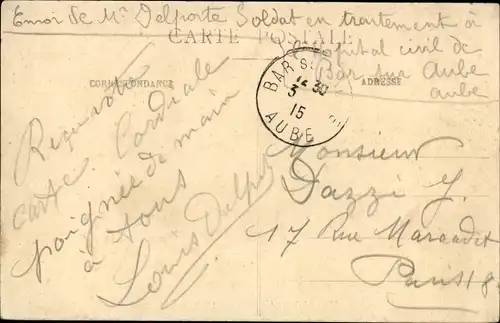 Envoi de Mr Delporte Soldat en traitement à
l'hôpital civil de
Bar sur Aube
aube
CARTE POSTALE
CORRESPONDANCE
ADRESSE
BAR S
14 30
3
15
AUBE
Reçu votre
carte. Cordiale
poignée de main
à tous
Louis Delporte
Monsieur
Dazzi J.
17 Rue Marcadet
Paris 18